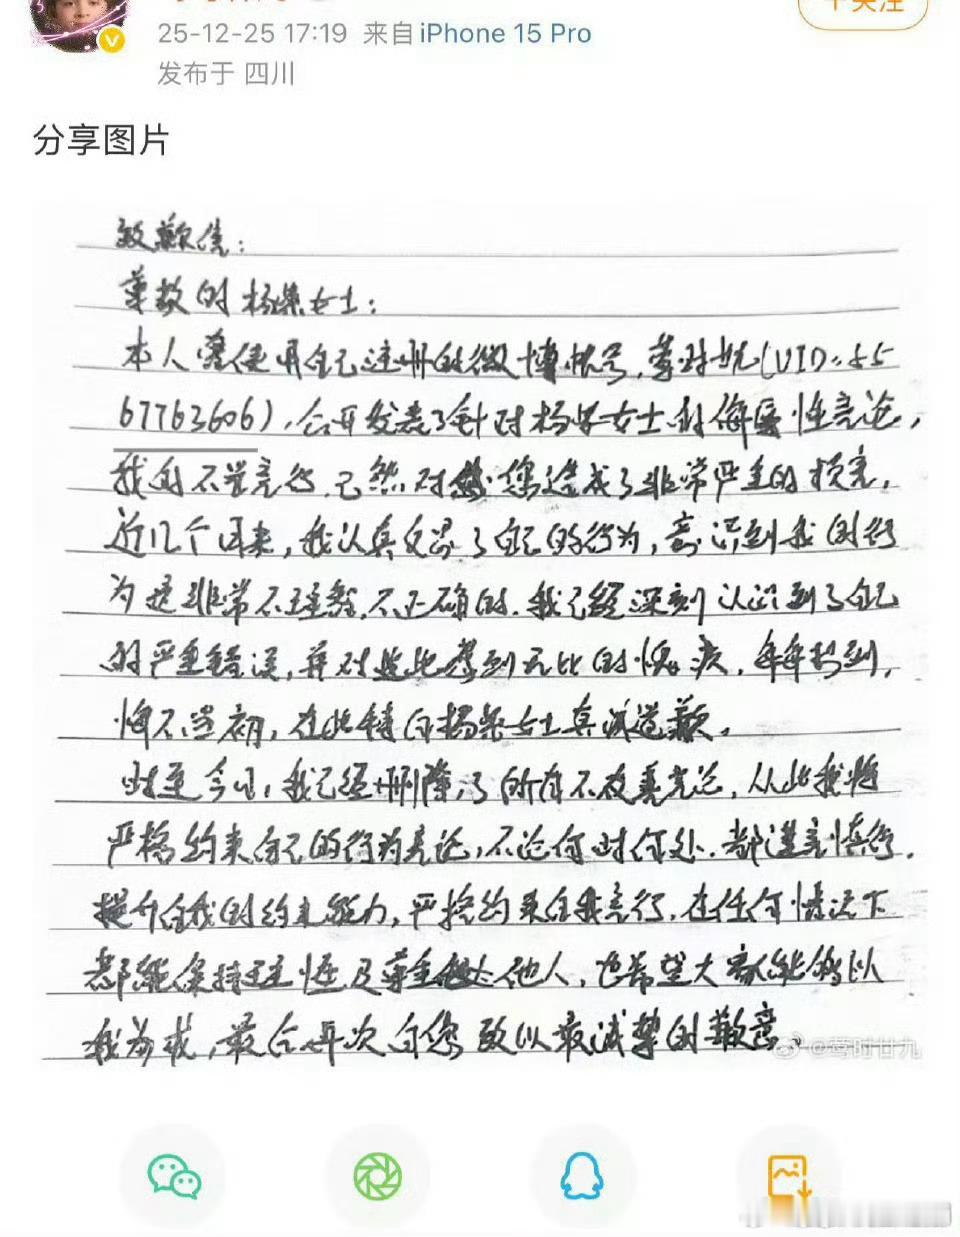 25-12-25 17:19 来自 iPhone 15 Pro
发布于 四川
十关注
分享图片
致歉信：
尊敬的杨紫女士：
本人曾使用自己注册的微博帐号，(UID：55
67763606)，公开发表了针对杨紫女士的侮辱性言论，
我的不当言行，已然对您造成了非常严重的损害，
近几个月来，我认真反思了自己的行为，意识到我的行
为是非常不理智，不正确的，我已经深刻认识到了自己
的严重错误，并对此感到无比的愧疚，
悔不当初，在此特向杨紫女士真诚道歉。
时至今日，我已经删除了所有不友善言论，从此我将
严格约束自己的行为言论，不论何时何处，都谨言慎行，
提升自我的约束能力，严格约束自我言行，在任何情况下
都能保持理性及尊重他人，也希望大家能够以
我为戒，最后再次向您致以最诚挚的歉意。
@莺时廿九